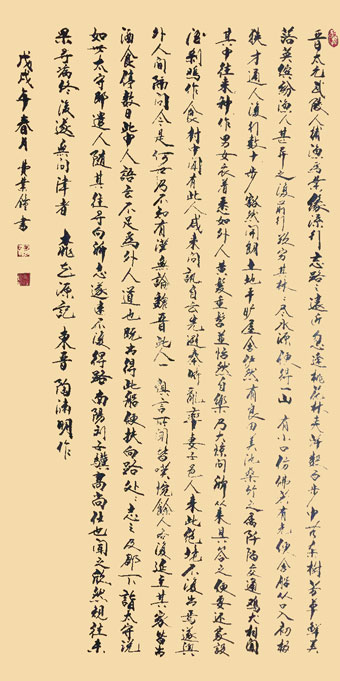 晉太元武陵人捕漁為業緣溪行忘路之遠近忽逢桃花林夾岸數百步中無雜樹芳草鮮美
落英繽紛漁人甚異之復前行欲窮其林林盡水源便得一山有小口仿佛若有光便舍船從口入初極
狹才通人復行數十步豁然開朗土地平曠屋舍儼然有良田美池桑竹之屬阡陌交通雞犬相聞
其中往來种作男女衣着悉如外人黃髮垂髫並怡然自樂乃大驚問所從來具答之便要還家設
酒殺鷄作食村中聞有此人咸來問訊自云先避秦時亂率妻子邑人來此絕境不復出焉遂與
外人間隔問今是何世乃不知有漢無論魏晉此人一一具言所聞皆嘆惋餘人各復延至其家皆出
酒食停數日此中人語云不足為外人道也既出得其船便扶向路處處志之及郡下詣太守說
如此太守即遣人隨其往尋向所志遂迷不復得路南陽劉子驥高尚士也聞之欣然規往未
果尋病終後遂無問津者 桃花源記 東晉 陶淵明作
戊戌年春月 業鋒書